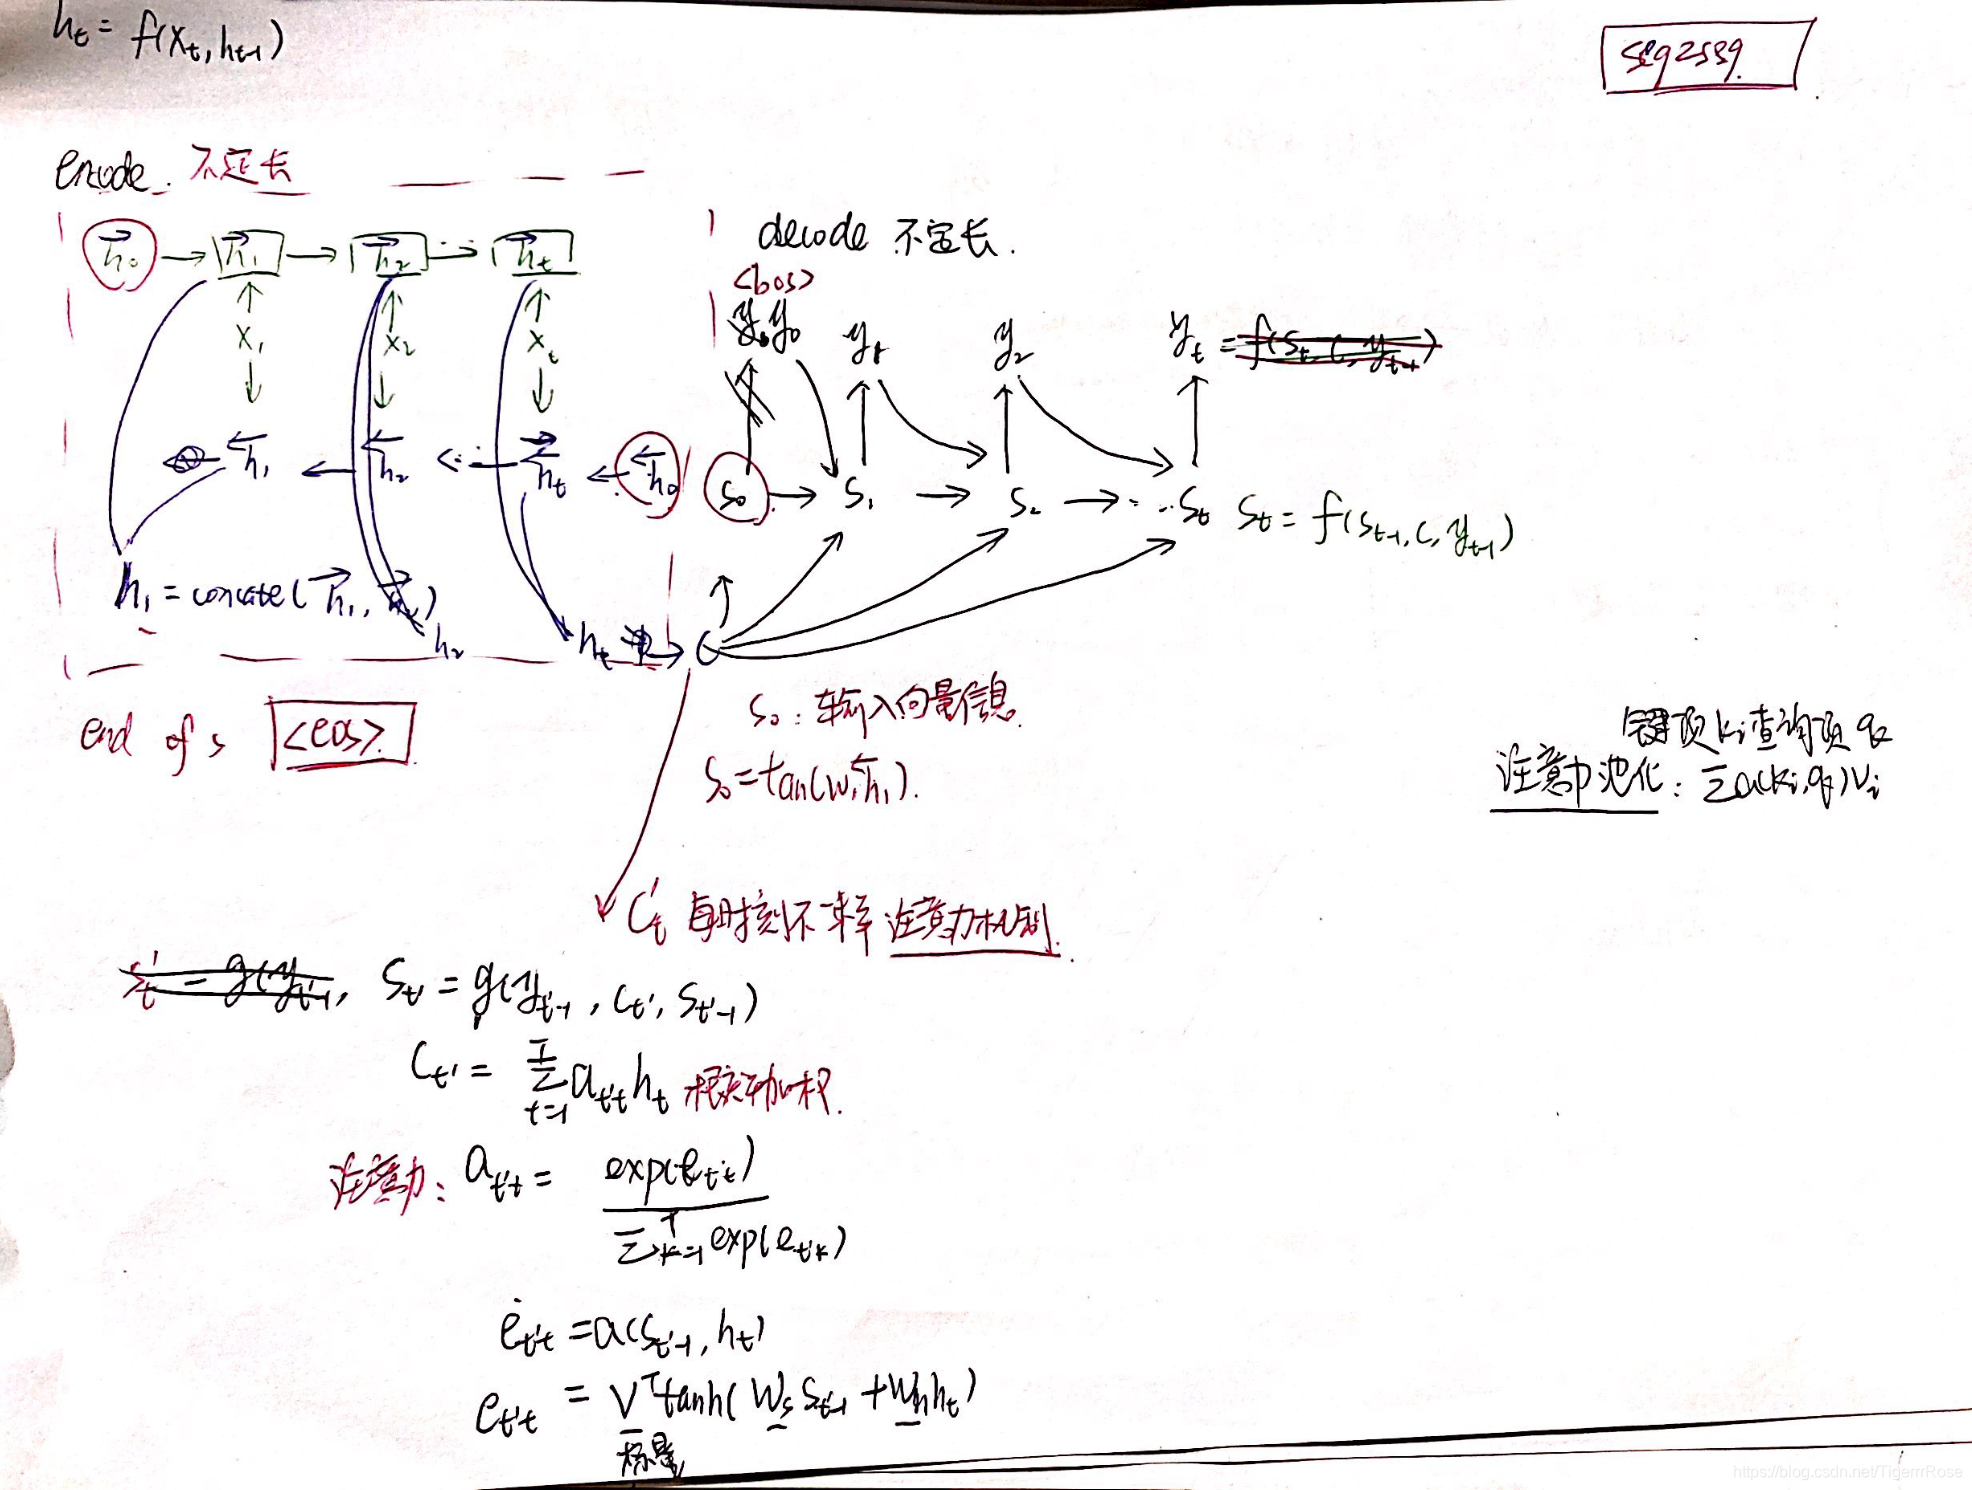 h_t = f(x_t, h_{t-1})
seq2seq
encode. 不定长
\vec{h}_0 → \vec{h}_1 → \vec{h}_2 → \vec{h}_t
x_1 x_2 x_t
\overleftarrow{h}_1 ← \overleftarrow{h}_2 ← h_t ← \overleftarrow{h}_0
h_1 = concate(\vec{h}_1,
h_2
h_t → C
end of s <eos>
decode 不定长.
<bos>
y_0 y_1 y_2 y_t = f(s_t, c, y_{t-1})
s_0 → s_1 → s_2 → ... s_t s_t = f(s_{t-1}, c, y_{t-1})
s_0: 输入向量信息.
s_0 = tan(w_1\overleftarrow{h}_1).
键项k_i查询项q
注意力池化: Σa(k_i, q)v_i
C_t' 每时刻不一样 注意力机制.
s_t' = g(y_{t'-1}, s_{t'} = g(y_{t'-1}, c_{t'}, s_{t'-1})
c_{t'} = Σ_{t=1}^{T} a_{t't} h_t 加权.
注意力: a_{t't} = exp(e_{t't}) / Σ_{k=1}^{T} exp(e_{t'k})
e_{t't} = a(s_{t'-1}, h_t)
e_{t't} = V^T tanh(W_s s_{t'-1} + W_h h_t)
标量
https://blog.csdn.net/TigerrrRose